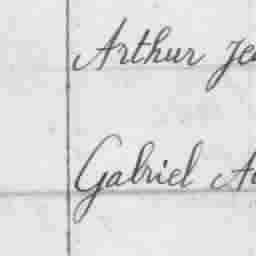 Arthur
Gabriel